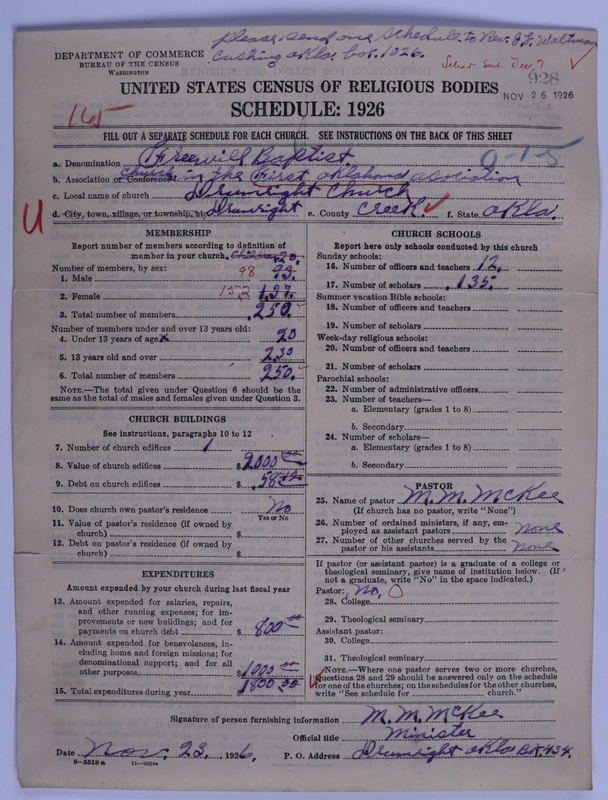 Please send one schedule to Rev. J. F. Waltman
Cushing okla. box. 1026.
DEPARTMENT OF COMMERCE
BUREAU OF THE CENSUS
WASHINGTON
928
NOV 26 1926
UNITED STATES CENSUS OF RELIGIOUS BODIES
SCHEDULE: 1926
165
FILL OUT A SEPARATE SCHEDULE FOR EACH CHURCH. SEE INSTRUCTIONS ON THE BACK OF THIS SHEET
a. Denomination Freewill Baptist
0-1-5
b. Association or Conference church in the First oklahoma asociation
c. Local name of church Drumright Church
U
d. City, town, village, or township, etc. Drumright e. County Creek. f. State okla.
MEMBERSHIP
Report number of members according to definition of
member in your church. Children 20.
Number of members, by sex:
1. Male 98 93.
2. Female 152 137.
3. Total number of members 250.
Number of members under and over 13 years old:
4. Under 13 years of age x 20
5. 13 years old and over 230
6. Total number of members 250.
NOTE.—The total given under Question 6 should be
the same as the total of males and females given under Question 3.
CHURCH BUILDINGS
See instructions, paragraphs 10 to 12
7. Number of church edifices 1
8. Value of church edifices $ 2000 00
9. Debt on church edifices $ 58
10. Does church own pastor's residence No
Yes or No
11. Value of pastor's residence (if owned by
church) $
12. Debt on pastor's residence (if owned by
church) $
EXPENDITURES
Amount expended by your church during last fiscal year
13. Amount expended for salaries, repairs,
and other running expenses; for im-
provements or new buildings; and for
payments on church debt $ 800 00
14. Amount expended for benevolences, in-
cluding home and foreign missions; for
denominational support; and for all
other purposes $ 1000 00
15. Total expenditures during year $ 1800 00
CHURCH SCHOOLS
Report here only schools conducted by this church
Sunday schools:
16. Number of officers and teachers 12.
17. Number of scholars 135
Summer vacation Bible schools:
18. Number of officers and teachers
19. Number of scholars
Week-day religious schools:
20. Number of officers and teachers
21. Number of scholars
Parochial schools:
22. Number of administrative officers
23. Number of teachers—
a. Elementary (grades 1 to 8)
b. Secondary
24. Number of scholars—
a. Elementary (grades 1 to 8)
b. Secondary
PASTOR
25. Name of pastor M. M. McKee
(If church has no pastor, write "None")
26. Number of ordained ministers, if any, em-
ployed as assistant pastors None
27. Number of other churches served by the
pastor or his assistants None
If pastor (or assistant pastor) is a graduate of a college or
theological seminary, give name of institution below. (If
not a graduate, write "No" in the space indicated.)
Pastor: No, 0
28. College
29. Theological seminary
Assistant pastor:
30. College
31. Theological seminary
NOTE.—Where one pastor serves two or more churches,
Questions 28 and 29 should be answered only on the schedule
for one of the churches; on the schedules for the other churches,
write "See schedule for church."
Signature of person furnishing information M. M. McKee
Official title Minister
Date Nov. 23, 1926. P. O. Address Drumright okla Box. 434.
8-5518 a